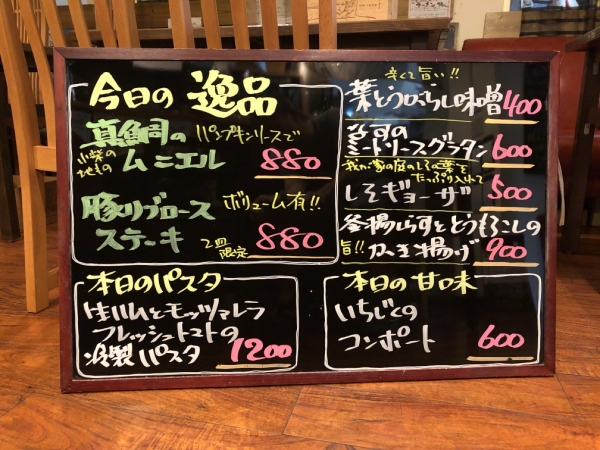 今日の 逸品
真鯛の パンプキンソースで
小柴の
地もの ムニエル 880
豚リブロース ボリューム有!!
ステーキ 2皿限定 880
辛くて旨い!!
葉とうがらし味噌 400
なすの
ミートソースグラタン 600
我が家の庭のしその葉を
たっぷり入れて
しそギョーザ 500
釜揚しらすととうもろこしの
旨!! かき揚げ 900
本日のパスタ
生ハムとモッツァレラ
フレッシュトマトの
冷製パスタ 1200
本日の甘味
いちじくの
コンポート 600